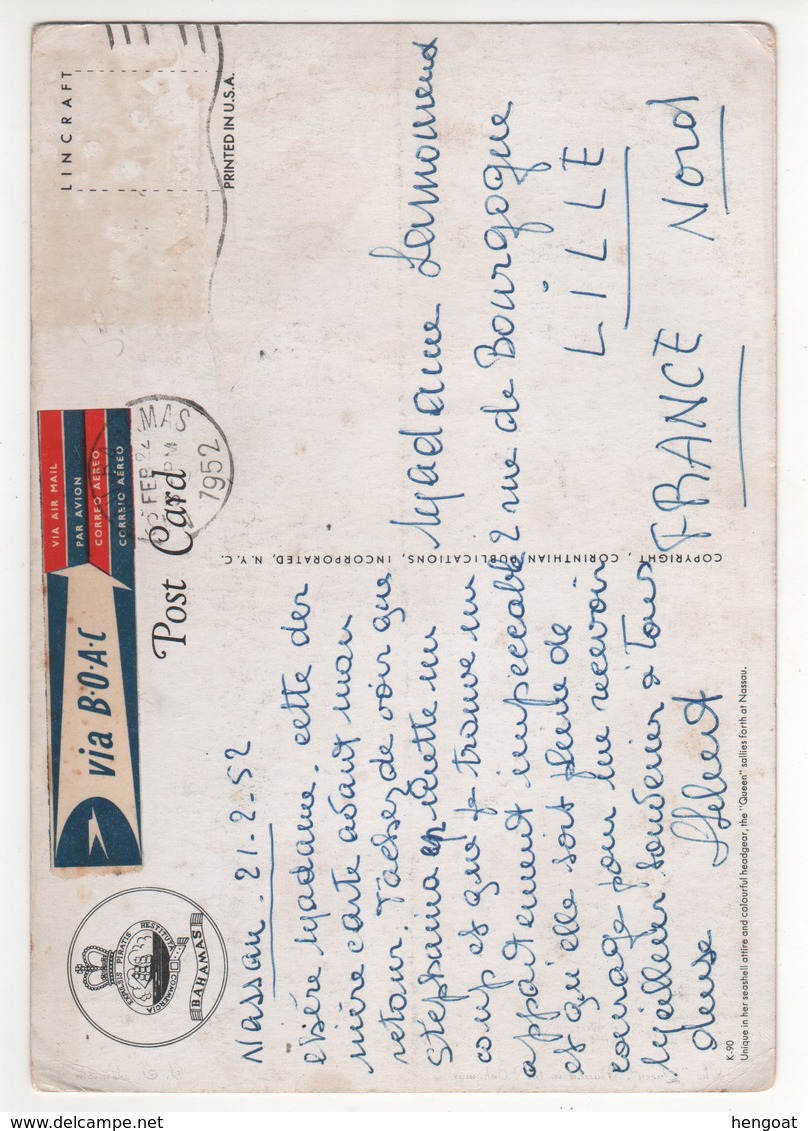 LINCRAFT
PRINTED IN U.S.A.
VIA AIR MAIL
PAR AVION
CORREO AEREO
CORREIO AÉREO
via B·O·A·C
MAS
FEB 24
PM
1952
Post Card
EXPULSIS PIRATIS
RESTITUTA
COMMERCIA
BAHAMAS
COPYRIGHT, CORINTHIAN PUBLICATIONS, INCORPORATED, N.Y.C.
Nassau. 21-2-52
Chère Madame. cette der
nière carte avant mon
retour. Tachez de voir que
Stephania mette un
coup et que je trouve un
appartement impeccable
et qu'elle soit pleine de
courage pour me recevoir
Meilleur souvenir à tous
deux
Madame Lamourend
2 rue de Bourgogne
LILLE
FRANCE Nord
K-90
Unique in her seashell attire and colourful headgear, the "Queen" sallies forth at Nassau.
hengoat